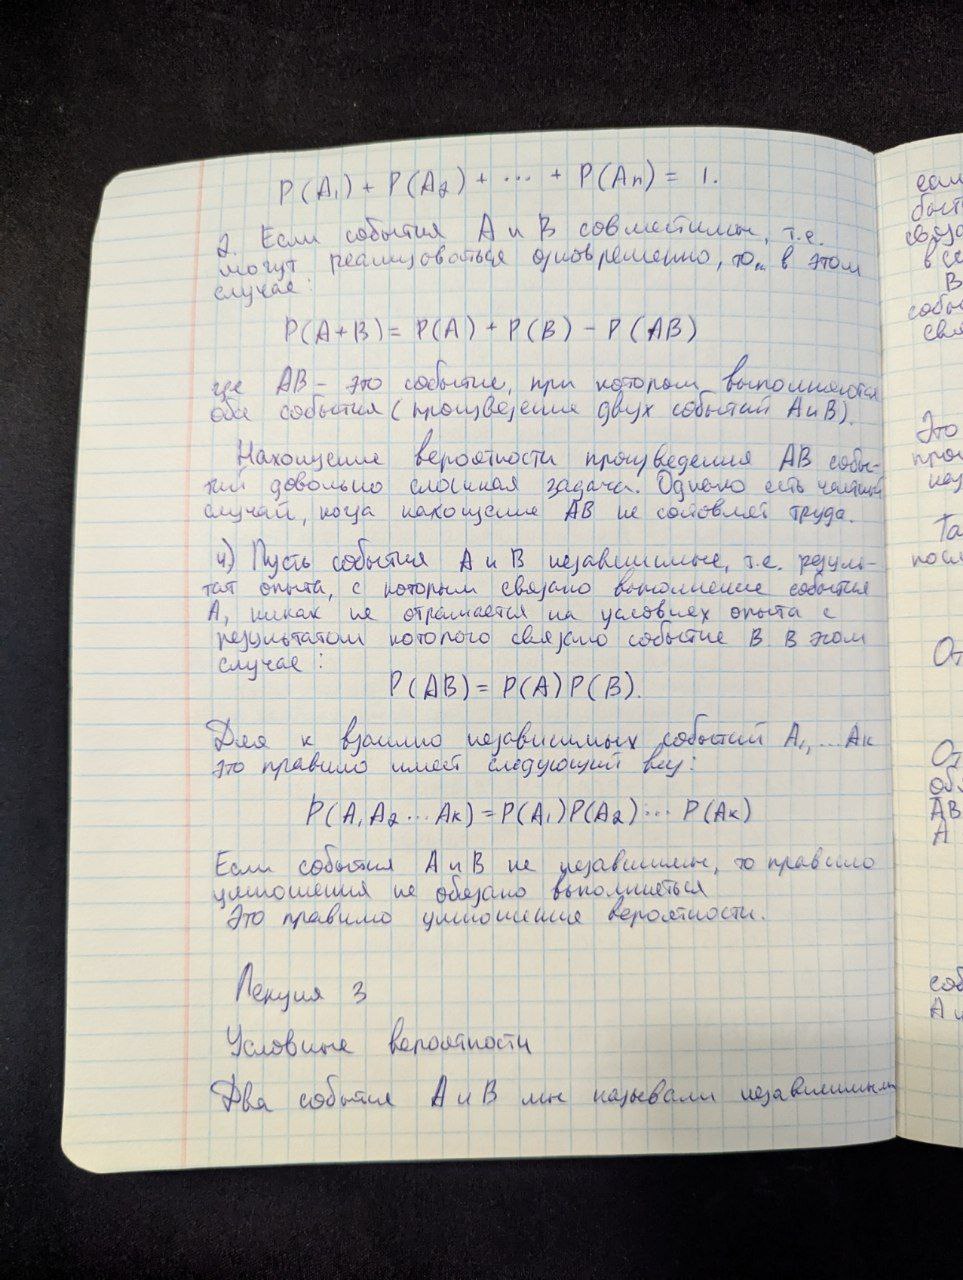 P(A₁) + P(A₂) + ... + P(An) = 1.
2. Если события А и В совместимы, т.е.
могут реализоваться одновременно, то в этом
случае:
P(A+B) = P(A) + P(B) - P(AB)
где АВ - это событие, при котором выполняются
оба события (произведение двух событий А и В).
Нахождение вероятности произведения АВ собы-
тий довольно сложная задача. Однако есть частный
случай, когда нахождение АВ не составляет труда.
4) Пусть события А и В независимые, т.е. резуль-
тат опыта, с которым связано выполнение события
А, никак не отражается на условиях опыта с
результатом которого связано событие В. В этом
случае:
P(AB) = P(A)P(B).
Для к взаимно независимых событий А₁, ... Ак
это правило имеет следующий вид:
P(A₁A₂ ... Aк) = P(A₁)P(A₂) ... P(Aк)
Если события А и В не независимы, то правило
умножения не обязано выполняться
Это правило умножения вероятности.
Лекция 3
Условные вероятности
Два события А и В мы называли независимыми
Это
Та
От
От
АВ
А
А и